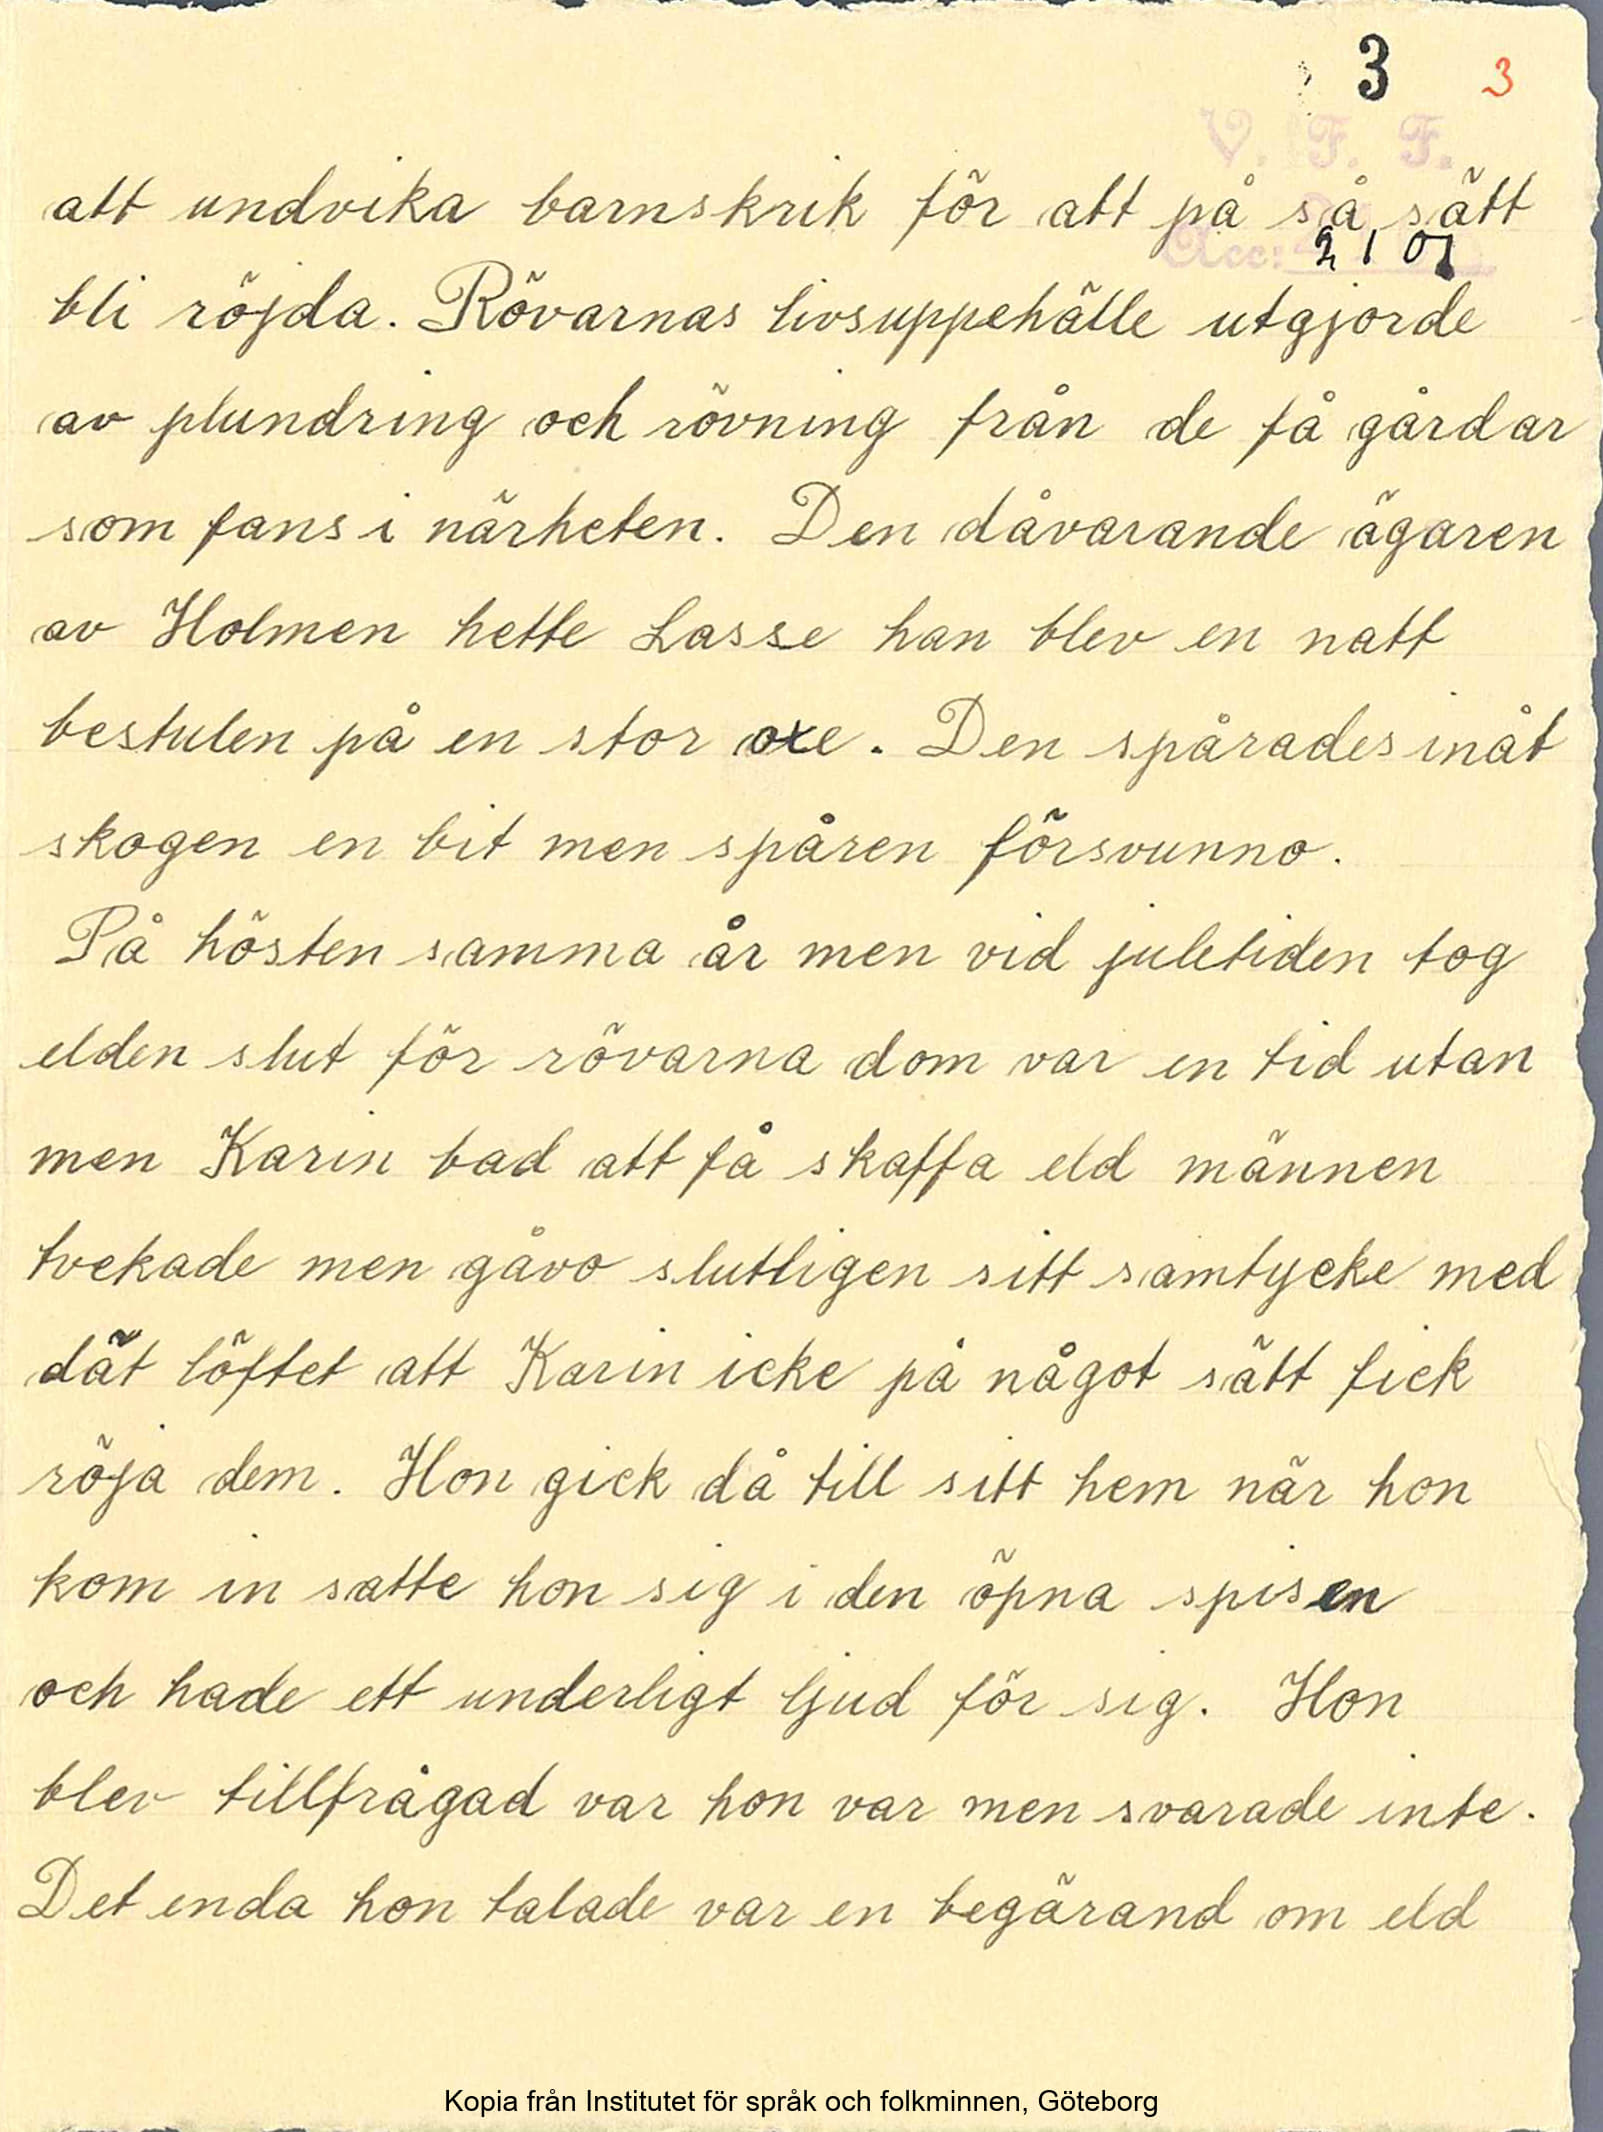 3 3
V. F. F.
att undvika barnskrik för att på så sätt
Acc: 2101
bli röjda. Rövarnas livsuppehälle utgjorde
av plundring och rövning från de få gårdar
som fans i närheten. Den dåvarande ägaren
av Holmen hette Lasse han blev en natt
bestulen på en stor oxe. Den spårades inåt
skogen en bit men spåren försvunno.
På hösten samma år men vid juletiden tog
elden slut för rövarna dom var en tid utan
men Karin bad att få skaffa eld männen
tvekade men gåvo slutligen sitt samtycke med
dät löftet att Karin icke på något sätt fick
röja dem. Hon gick då till sitt hem när hon
kom in satte hon sig i den öpna spisen
och hade ett underligt ljud för sig. Hon
blev tillfrågad var hon var men svarade inte.
Det enda hon talade var en begärand om eld
Kopia från Institutet för språk och folkminnen, Göteborg